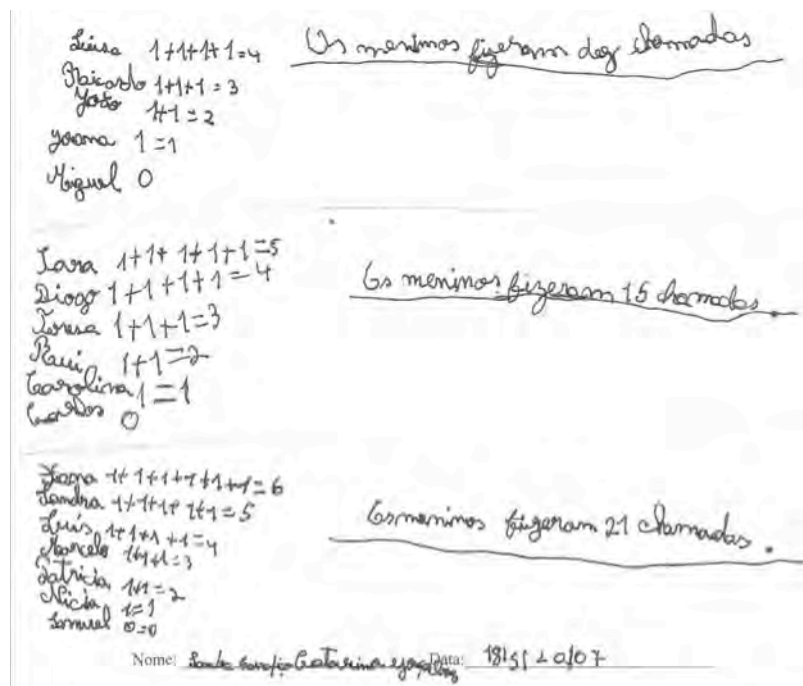 Luísa 1+1+1+1=4
Ricardo 1+1+1=3
João 1+1=2
Joana 1=1
Miguel 0
Os meninos fizeram dez chamadas
Sara 1+1+1+1+1=5
Diogo 1+1+1+1=4
Teresa 1+1+1=3
Raui 1+1=2
Carolina 1=1
Carlos 0
Os meninos fizeram 15 chamadas.
Joana 1+1+1+1+1+1=6
Sandra 1+1+1+1+1=5
Luís 1+1+1+1=4
Marcelo 1+1+1=3
Patrícia 1+1=2
Nícia 1=1
Samuel 0=0
Os meninos fizeram 21 chamadas.
Nome: Catarina
Data: